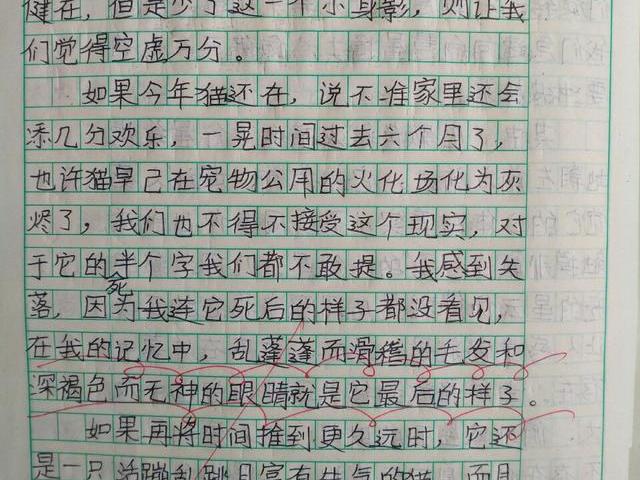 健在，但是少了这一个小身影，则让我
们觉得空虚万分。
如果今年猫还在，说不准家里还会
添几分欢乐，一晃时间过去六个月了，
也许猫早已在宠物公用的火化场化为灰
烬了，我们也不得不接受这个现实，对
于它的死半个字我们都不敢提。我感到失
落，因为我连它死后的样子都没看见，
在我的记忆中，乱蓬蓬而滑稽的毛发和
深褐色而无神的眼睛就是它最后的样子。
如果再将时间推到更久远时，它还
是一只活蹦乱跳且富有生气的猫，而且